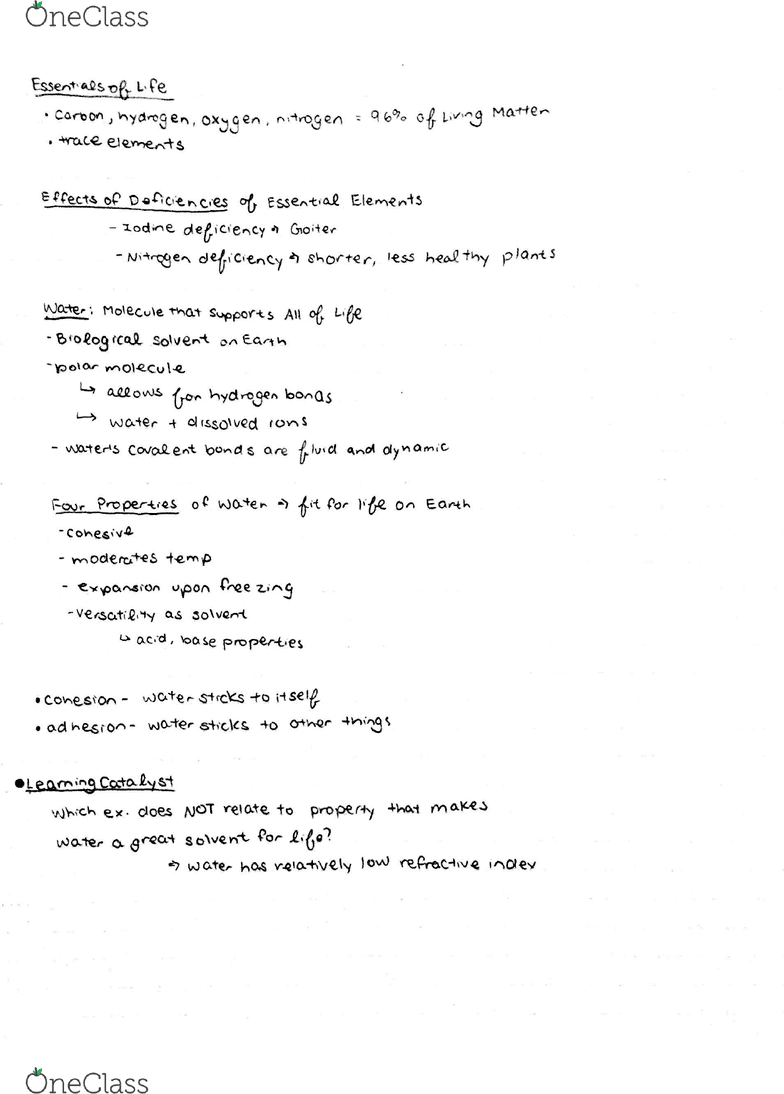 OneClass
Essentials of Life
• Carbon, hydrogen, oxygen, nitrogen = 96% of Living Matter
• trace elements
Effects of Deficiencies of Essential Elements
- Iodine deficiency → Goiter
- Nitrogen deficiency → shorter, less healthy plants
Water: Molecule that supports All of Life
- Biological solvent on Earth
- polar molecule
↳ allows for hydrogen bonds
↳ water + dissolved ions
- water's covalent bonds are fluid and dynamic
Four Properties of water → fit for life on Earth
- cohesive
- moderates temp
- expansion upon freezing
- versatility as solvent
↳ acid, base properties
• cohesion - water sticks to itself
• adhesion - water sticks to other things
• Learning Catalyst
which ex. does NOT relate to property that makes
water a great solvent for life?
→ water has relatively low refractive index
OneClass